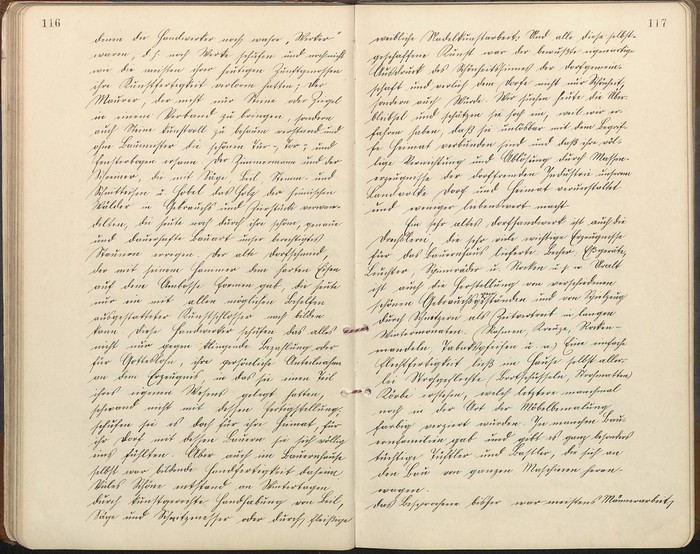 116
denen die Handwerker noch wahre „Werker"
waren, d. h. noch Werke schufen und noch nicht
wie die meisten ihrer heutigen Zunftgenossen
ihre Kunstfertigkeit verloren hatten; der
Maurer, der nicht nur Steine oder Ziegel
in einem Verband zu bringen, sondern
auch Steine kunstvoll zu behauen verstand und
ohne Baumeister die schönen Tür-, Tor- und
Fensterbogen ersann, der Zimmermann und der
Schreiner, die mit Säge, Beil, Stemm- und
Schnitteisen u. Hobel das Holz der heimischen
Wälder in Gebrauchs- und Zierstück verwan-
delten, die heute noch durch ihre schöne, genaue
und dauerhafte Bauart unser berechtigtes
Staunen erregen. Der alte Dorfschmied,
der mit seinem Hammer dem harten Eisen
auf dem Ambosse Formen gab, die heute
nur ein mit allen möglichen Behelfen
ausgestatteter Kunstschlosser nachbilden
kann. Diese Handwerker schufen das alles
nicht nur gegen klingende Bezahlung oder
für Gotteslohn, ihre persönliche Anteilnahme
an dem Erzeugnis, in das sie einen Teil
ihres eigenen Wesens gelegt hatten,
schwand nicht mit dessen Fertigstellung,
schufen sie es doch für ihre Heimat, für
ihr Dorf, mit dessen Bauern sie sich völlig
eins fühlten. Aber auch im Bauernhause
selbst war bildende Handfertigkeit daheim.
Vieles Schöne entstand an Wintertagen
durch kunstgerechte Handhabung von Beil,
Säge und Schnitzmesser oder durch fleißige
117
weibliche Nadelkunstarbeit. Und alle diese selbst-
geschaffene Kunst war der bewußte eigenartige
Ausdruck des Schönheitssinnes der Dorfgemein-
schaft und verlieh dem Dorfe nicht nur Schönheit,
sondern auch Würde. Wir suchen heute die Über-
bleibsel und schützen sie hoch ein, weil wir er-
fahren haben, daß sie unlösbar mit dem Begrif-
fe Heimat verbunden sind und daß ihre völ-
lige Vernichtung und Ablösung durch Massen-
erzeugnisse der dorffremden Industrie unserem
Landvolke Dorf und Heimat verunstaltet
und weniger liebenswert macht.
Ein sehr altes Dorfhandwerk ist auch die
Drechslerei, die sehr viele wichtige Erzeugnisse
für das Bauernhaus lieferte: Becher, Eßgeräte,
Leuchter, Spinnräder u. Rocken u. s. w. Uralt
ist auch die Herstellung von verschiedenen
schönen Gebrauchsgegenständen und von Spielzeug
durch Schnitzen als Zeitvertreib in langen
Wintermonaten. (Rahmen, Kreuze, Rocken-
mandeln, Tabakspfeifen u. a.) Eine einfache
Flechtfertigkeit ließ im Hause selbst aller-
lei Strohgeflechte (Brotschüsseln, Strohmatten)
Körbe erstehen, welch letztere manchmal
noch in der Art der Möbelbemalung
farbig verziert wurden. In manchen Bau-
ernfamilien gab und gibt es ganz besonders
tüchtige Tüftler und Bastler, die sich an
den Bau von ganzen Maschinen heran-
wagen.
Das Besprochene bisher war meistens Männerarbeit,